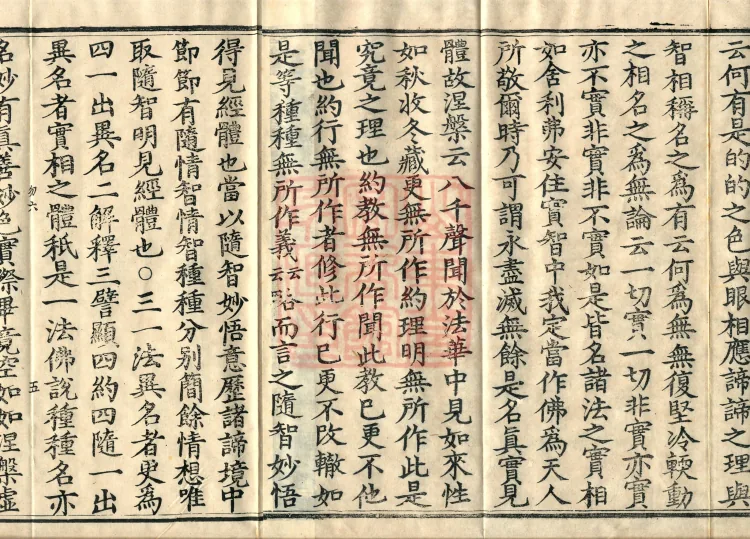 云何有是的的之色與眼相應諦諦之理與
智相稱名之為有云何為無無復堅冷輭動
之相名之為無論云一切實一切非實亦實
亦不實非實非不實如是皆名諸法之實相
如舍利弗安住實智中我定當作佛為天人
所敬爾時乃可謂永盡滅無餘是名真實見
體故涅槃云八千聲聞於法華中見如來性
如秋收冬藏更無所作約理明無所作此是
究竟之理也約教無所作聞此教已更不他
聞也約行無所作者修此行已更不改轍如
是等種種無所作義云云略而言之隨智妙悟
得見經體也當以隨智妙悟意歷諸諦境中
節節有隨情智情智種種分別簡餘情想唯
取隨智明見經體也○三一法異名者更為
四一出異名二解釋三譬顯四約四隨一出
異名者實相之體秖是一法佛說種種名亦
名妙有真善妙色實際畢竟空如如涅槃虛